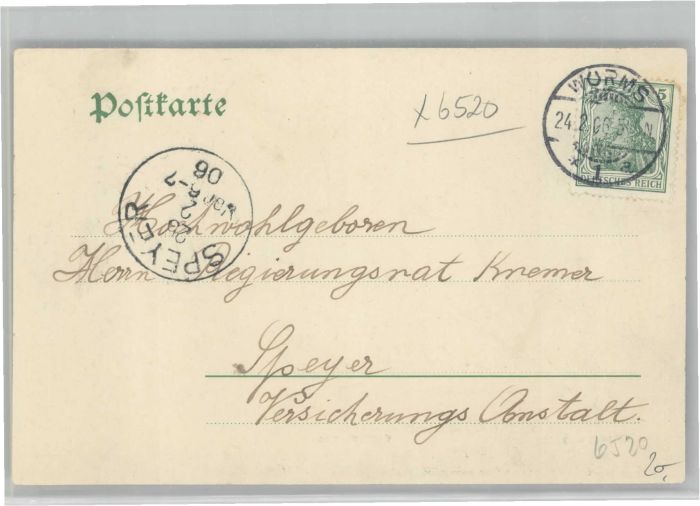 Postkarte
x6520
WORMS
24.2.06.
1 a
5
DEUTSCHES REICH
SPEYER
2
Vor 6-7
06
Hochwohlgeboren
Herrn Regierungsrat Kremer
Speyer
Versicherungs Anstalt.
6520
20,